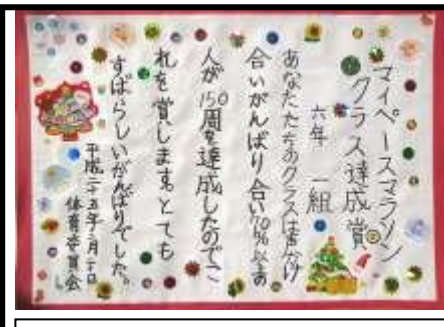 マイペースマラソン
クラス達成賞
六年 一組
あなたたちのクラスは声かけ
合いがんばり合い70%以上の
人が150周を達成したのでこ
れを賞します。とても
すばらしいがんばりでした。
平成二十五年二月二十日
体育委員会